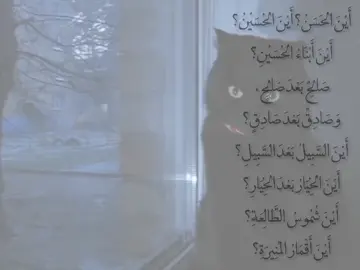 أَيْنَ الحَسَنُ؟ أَيْنَ الحُسَيْنُ؟
أَيْنَ أَبْنَاءُ الحُسَيْنِ؟
صَالِحٌ بَعْدَ صَالِحٍ،
وَصَادِقٌ بَعْدَ صَادِقٍ؟
أَيْنَ السَّبِيلُ بَعْدَ السَّبِيلِ؟
أَيْنَ الخِيَارُ بَعْدَ الخِيَارِ؟
أَيْنَ شُمُوسُ الطَّالِعَةِ؟
أَيْنَ أَقْمَارُ المُنِيرَةِ؟